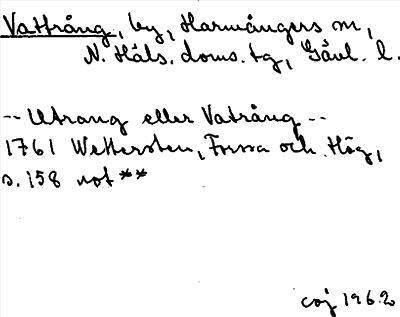 Vattrång, by, Harmångers sn,
N. Häls. doms. tg, Gävl. l.
-- Utrang eller Vatrång --
1761 Wettersten, Forssa och Hög,
s. 158 not **
coj 1962